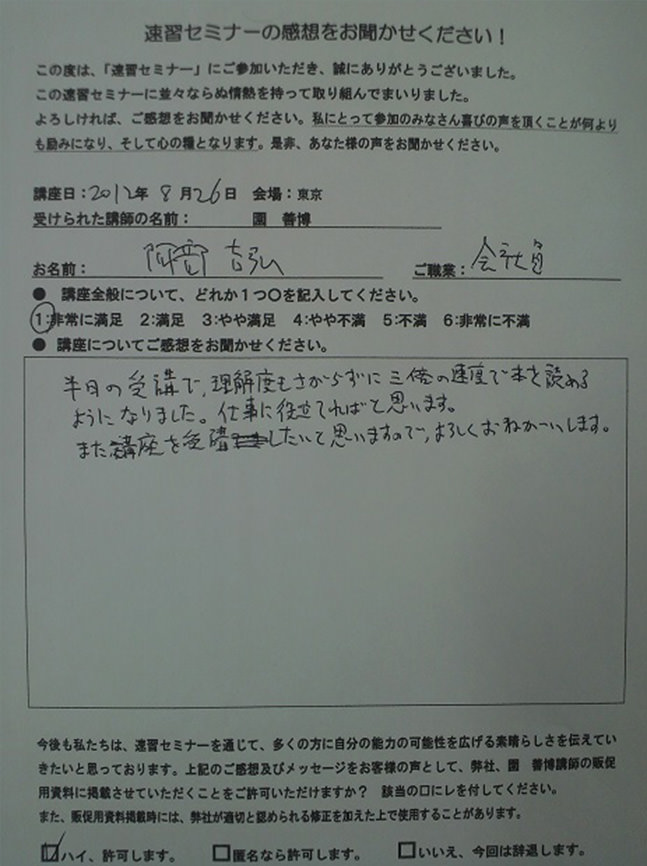 速習セミナーの感想をお聞かせください！
この度は、「速習セミナー」にご参加いただき、誠にありがとうございました。
この速習セミナーに並々ならぬ情熱を持って取り組んでまいりました。
よろしければ、ご感想をお聞かせください。私にとって参加のみなさん喜びの声を頂くことが何より
も励みになり、そして心の糧となります。是非、あなた様の声をお聞かせください。
講座日：2012年 8月26日 会場：東京
受けられた講師の名前： 園 善博
お名前： 阿部 吉弘 ご職業： 会社員
● 講座全般について、どれか１つ〇を記入してください。
1:非常に満足 2:満足 3:やや満足 4:やや不満 5:不満 6:非常に不満
● 講座についてご感想をお聞かせください。
半日の受講で、理解度もさがらずに三倍の速度で本を読める
ようになりました。仕事に役立てればと思います。
また講座を受講したいと思いますので、よろしくおねがいします。
今後も私たちは、速習セミナーを通じて、多くの方に自分の能力の可能性を広げる素晴らしさを伝えてい
きたいと思っております。上記のご感想及びメッセージをお客様の声として、弊社、園 善博講師の販促
用資料に掲載させていただくことをご許可いただけますか？ 該当の口にレを付してください。
また、販促用資料掲載時には、弊社が適切と認められる修正を加えた上で使用することがあります。
☑ハイ、許可します。 □匿名なら許可します。 □いいえ、今回は辞退します。